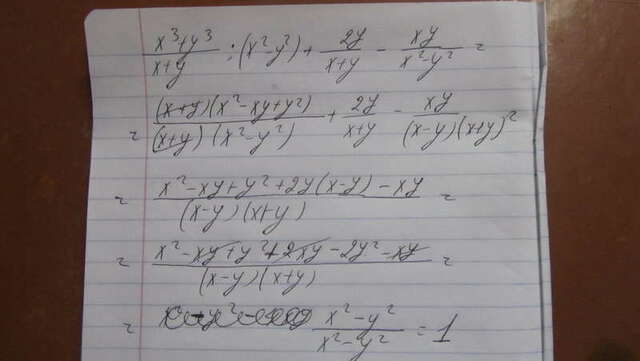 (x³+y³)/(x+y) : (x²-y²) + 2y/(x+y) - xy/(x²-y²) =
= (x+y)(x²-xy+y²)/((x+y)(x²-y²)) + 2y/(x+y) - xy/((x-y)(x+y)) =
= (x²-xy+y²+2y(x-y)-xy)/((x-y)(x+y)) =
= (x²-xy+y²+2xy-2y²-xy)/((x-y)(x+y)) =
= (x²-y²)/(x²-y²) = 1